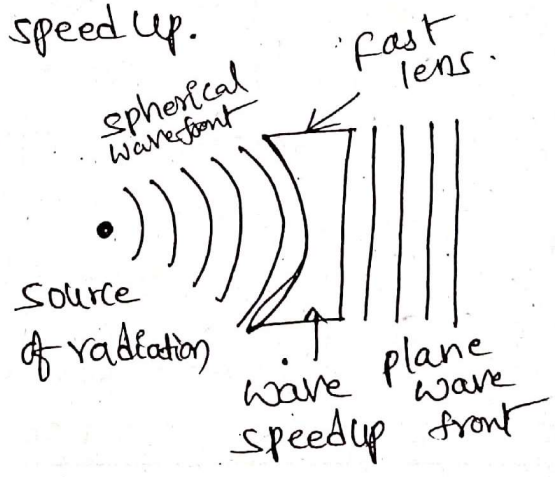 speed up.
fast
lens.
spherical
wavefront
source
of radiation
wave
speedup
plane
wave
front